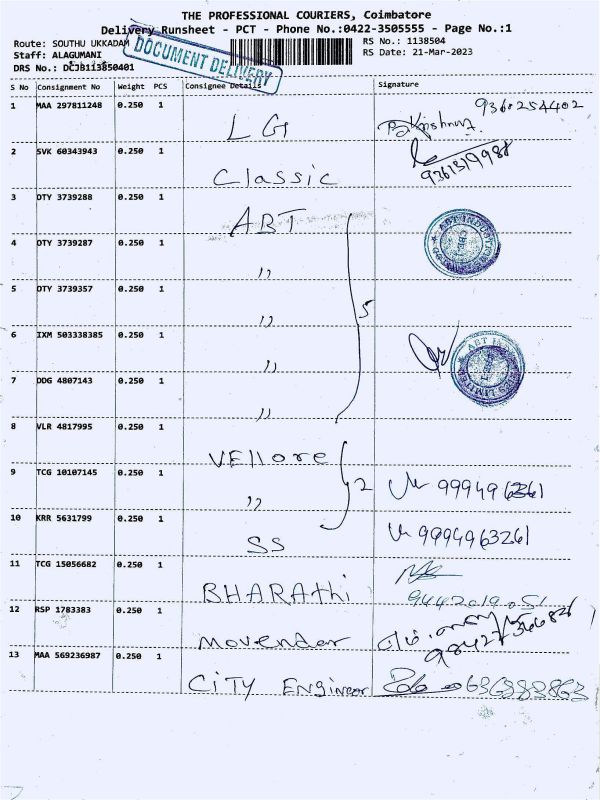 THE PROFESSIONAL COURIERS, Coimbatore
Delivery Runsheet - PCT - Phone No.:0422-3505555 - Page No.:1
Route: SOUTHU UKKADAM
RS No.: 1138504
Staff: ALAGUMANI
RS Date: 21-Mar-2023
DRS No.: DCJB113850401
DOCUMENT DELIVERY
S No Consignment No Weight PCS Consignee Details Signature
1 MAA 297811248 0.250 1 LG
Krishna
2 SVK 60343943 0.250 1 Classic
3 OTY 3739288 0.250 1 ABT
4 OTY 3739287 0.250 1 ,,
5 OTY 3739357 0.250 1 ,,
5
6 IXM 503338385 0.250 1 ,,
7 DDG 4807143 0.250 1 ,,
8 VLR 4817995 0.250 1 VEllore
9 TCG 10107145 0.250 1 ,, 2
10 KRR 5631799 0.250 1 SS 9994963261
11 TCG 15056682 0.250 1 BHARAthi 9442019051
12 RSP 1783383 0.250 1 Movendar
13 MAA 569236987 0.250 1 CiTY Engineer